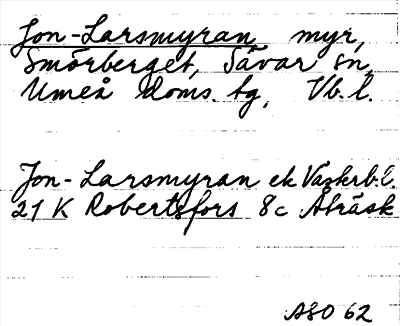 Jon-Larsmyran myr,
Smörberget, Sävar sn,
Umeå doms. tg, Vb. l.
Jon-Larsmyran ek Västerb. l.
21 K Robertsfors 8c Åträsk
ASO 62